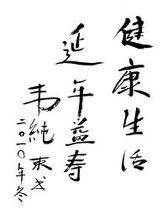 健康生活
延年益寿
韦纯束书
二〇一〇年冬